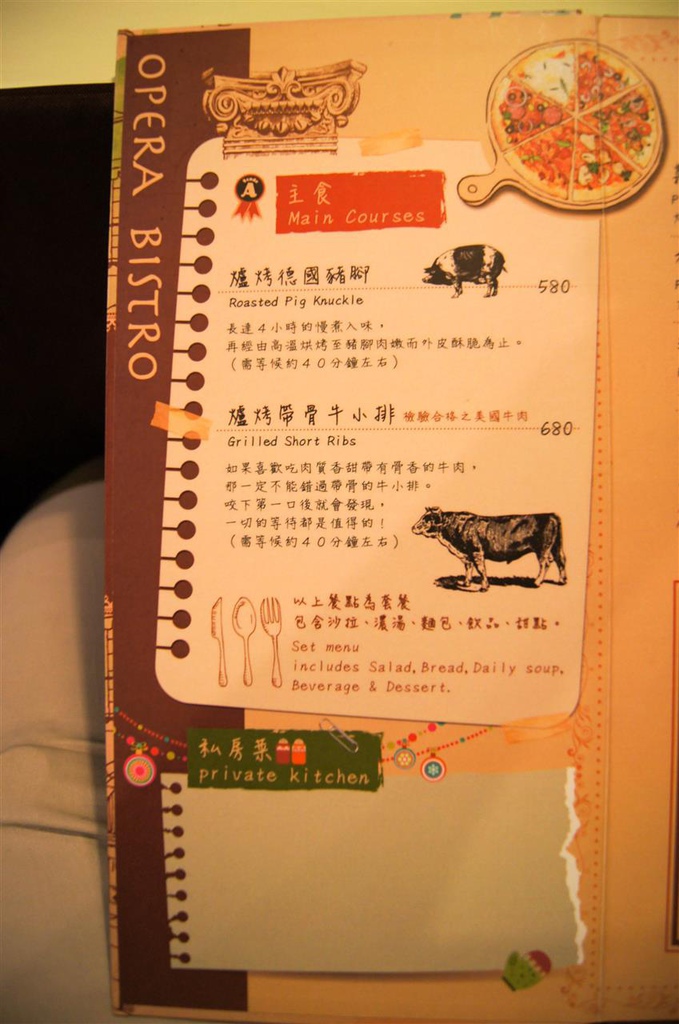 OPERA BISTRO
A
主食
Main Courses
爐烤德國豬腳 580
Roasted Pig Knuckle
長達4小時的慢煮入味，
再經由高溫烘烤至豬腳肉嫩而外皮酥脆為止。
（需等候約40分鐘左右）
爐烤帶骨牛小排 檢驗合格之美國牛肉 680
Grilled Short Ribs
如果喜歡吃肉質香甜帶有骨香的牛肉，
那一定不能錯過帶骨的牛小排。
咬下第一口後就會發現，
一切的等待都是值得的！
（需等候約40分鐘左右）
以上餐點為套餐
包含沙拉、濃湯、麵包、飲品、甜點。
Set menu
includes Salad, Bread, Daily soup,
Beverage & Dessert.
私房菜
private kitchen